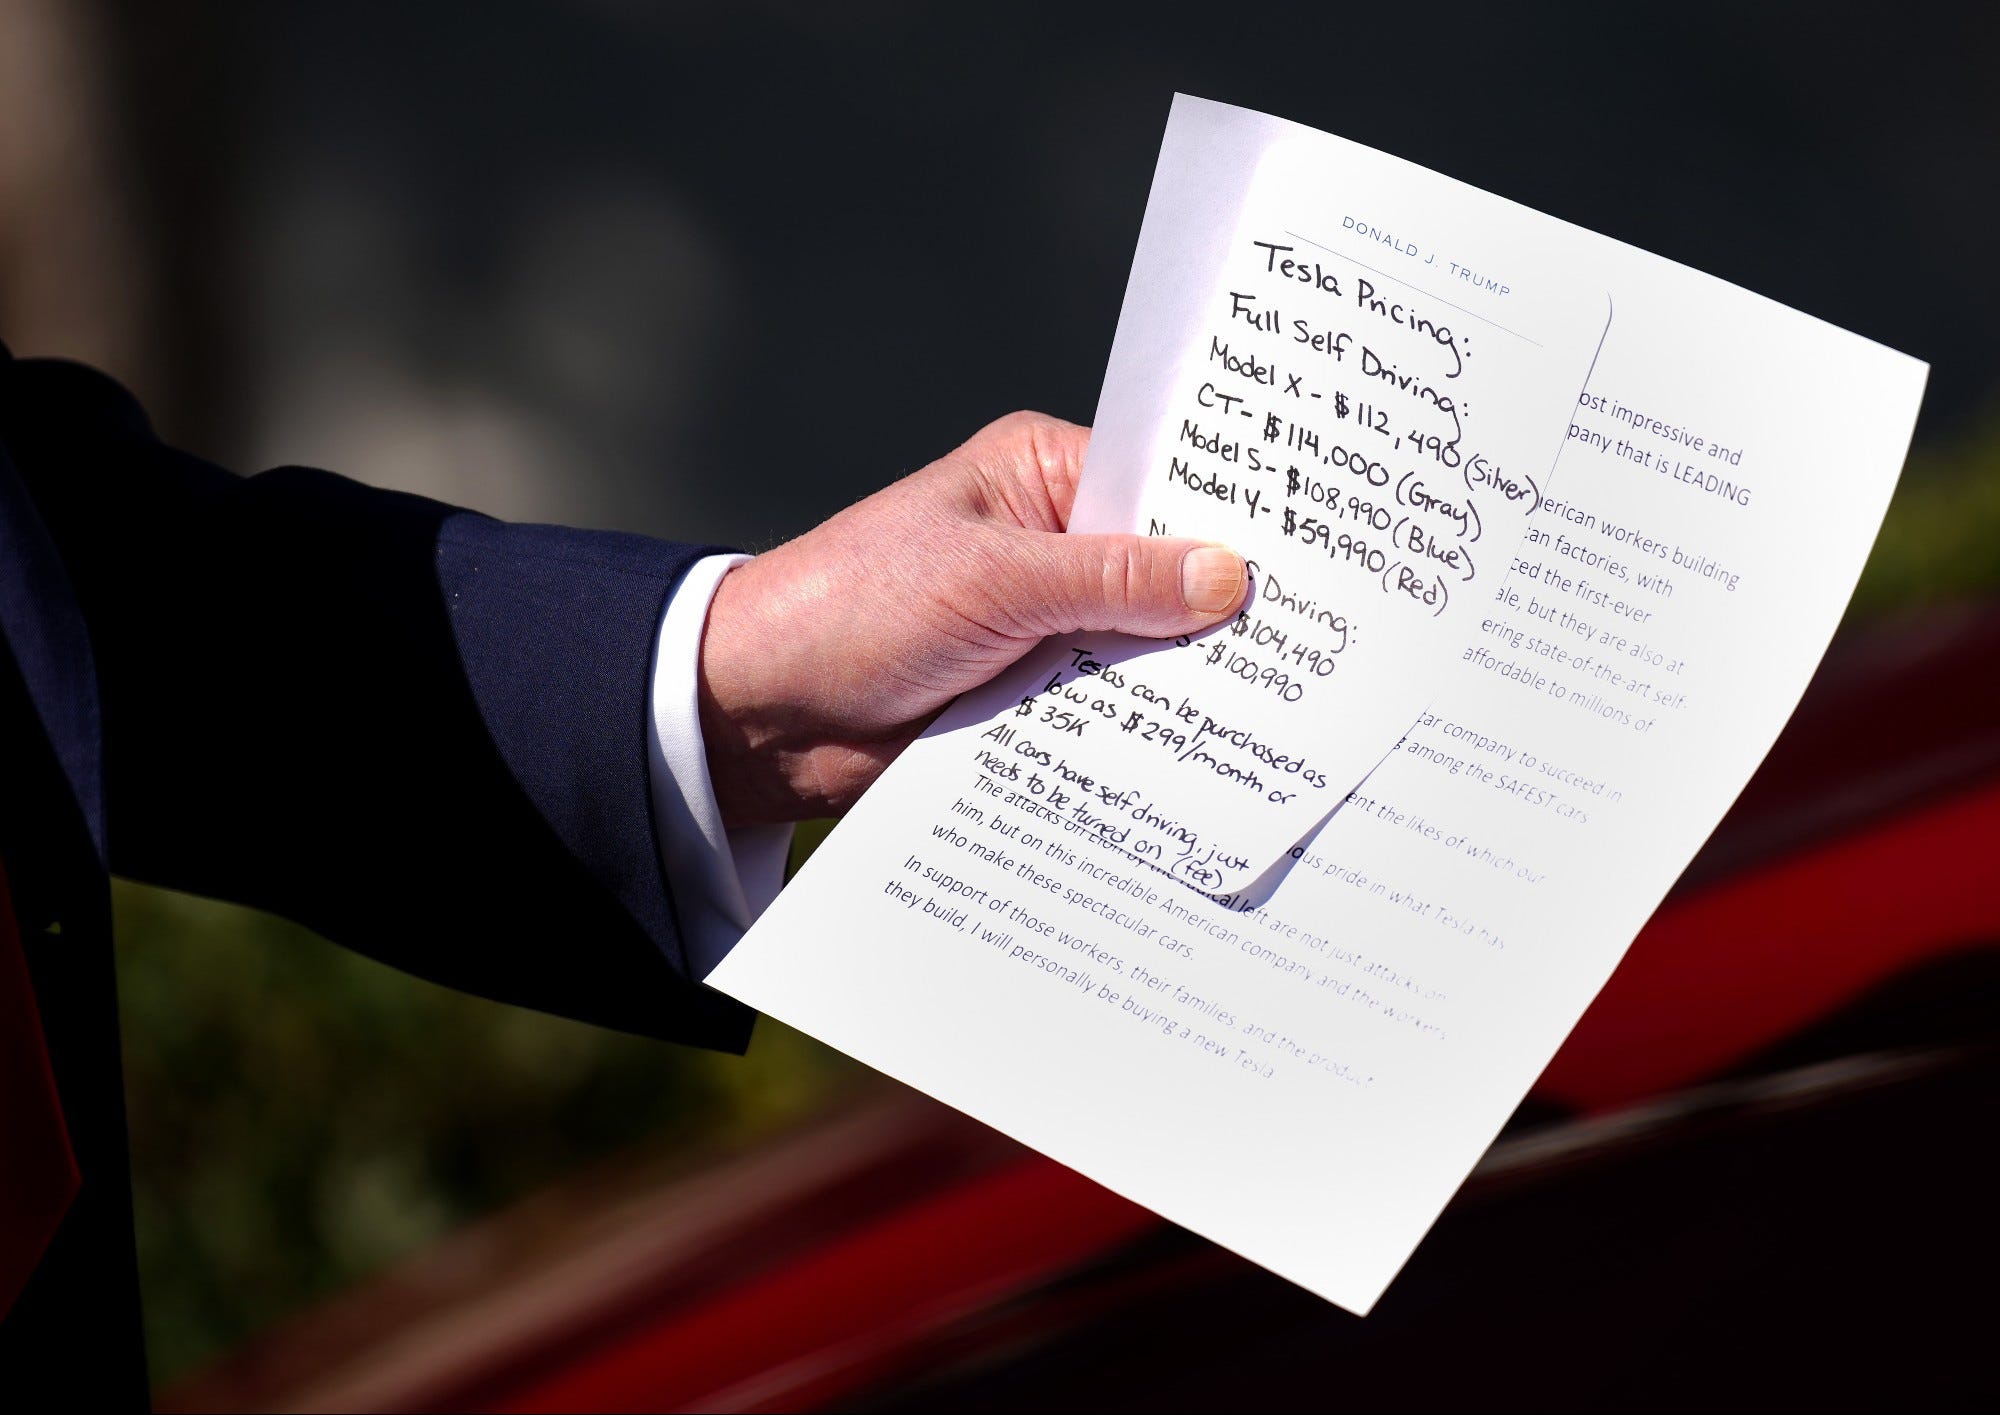 DONALD J. TRUMP
Tesla Pricing:
Full Self Driving:
Model X - $112,490 (Silver)
CT - $114,000 (Gray)
Model S - $108,990 (Blue)
Model Y - $59,990 (Red)
Driving:
$104,490
S - $100,990
Teslas can be purchased as
low as $299/month or
$35K
All cars have self driving, just
needs to be turned on (fee)
ost impressive and
pany that is LEADING
erican workers building
can factories, with
ced the first-ever
ale, but they are also at
ering state-of-the-art self-
affordable to millions of
car company to succeed in
g among the SAFEST cars
ent the likes of which our
ous pride in what Tesla has
The attacks on Elon by the radical left are not just attacks on
him, but on this incredible American company and the workers
who make these spectacular cars.
In support of those workers, their families, and the product
they build, I will personally be buying a new Tesla